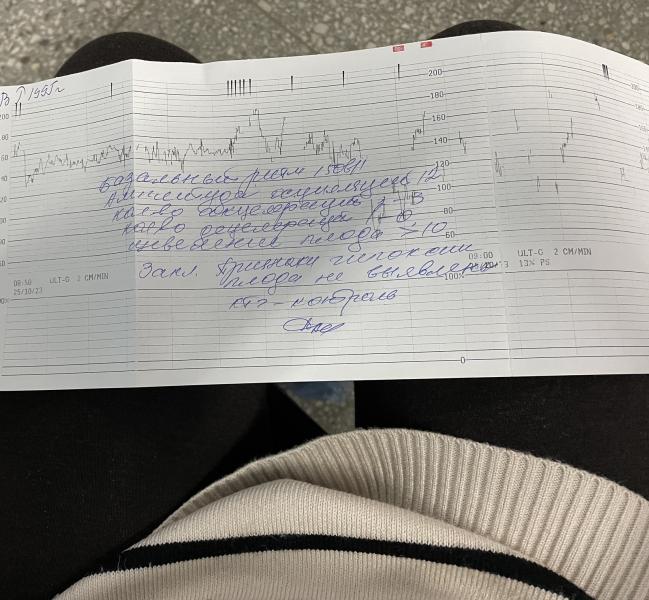 1995г
200
180
160
140
120
100
80
60
базальный ритм 150 в 1'
Амплитуда осцилляций 12
кол-во акцелераций 3
кол-во децелераций 0
шевеления плода >10
Закл. Признаки гипоксии
плода не выявлено
КТГ-контроль
08:50 ULT-G 2 CM/MIN
25/10/23
09:00 ULT-G 2 CM/MIN
13% PS
100%
0